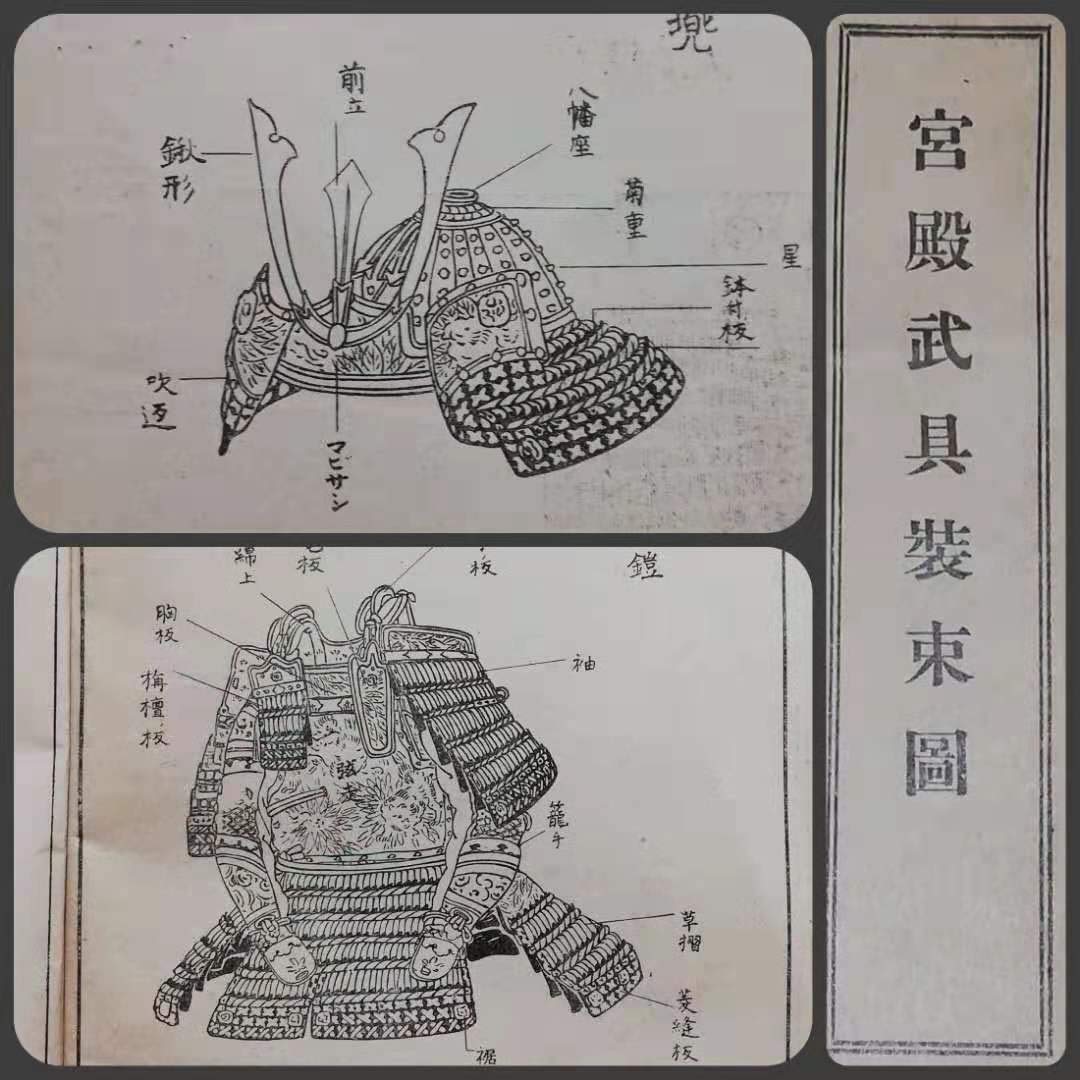 兜
前立
八幡座
鍬形
菊重
星
鉢付板
吹返
マビサシ
鎧
板
板
胸板
栴檀ノ板
袖
弦走
籠手
草摺
菱縫板
裾
宮殿武具裝束圖